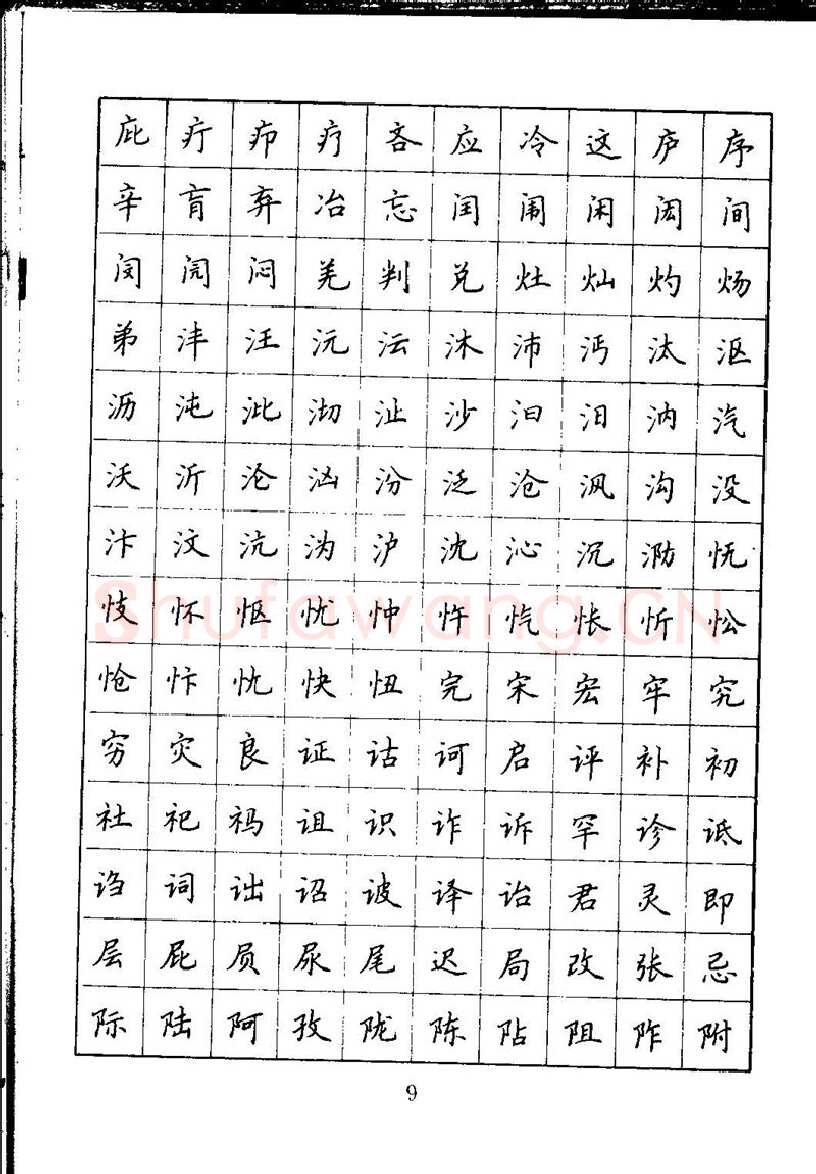 庇 疔 疖 疗 吝 应 冷 这 庐 序
辛 肓 弃 冶 忘 闰 闱 闲 闳 间
闵 闶 闷 羌 判 兑 灶 灿 灼 炀
弟 沣 汪 沅 沄 沐 沛 沔 汰 沤
沥 沌 沘 沏 沚 沙 汩 汨 汭 汽
沃 沂 沦 汹 汾 泛 沧 沨 沟 没
汴 汶 沆 沩 沪 沈 沁 沉 泐 怃
忮 怀 怄 忧 忡 忤 忾 怅 忻 忪
怆 忭 忱 快 忸 完 宋 宏 牢 究
穷 灾 良 证 诂 诃 启 评 补 初
社 祀 祃 诅 识 诈 诉 罕 诊 诋
诌 词 诎 诏 诐 译 诒 君 灵 即
层 屁 屃 尿 尾 迟 局 改 张 忌
际 陆 阿 孜 陇 陈 阽 阻 阼 附
9
Shufawang.CN